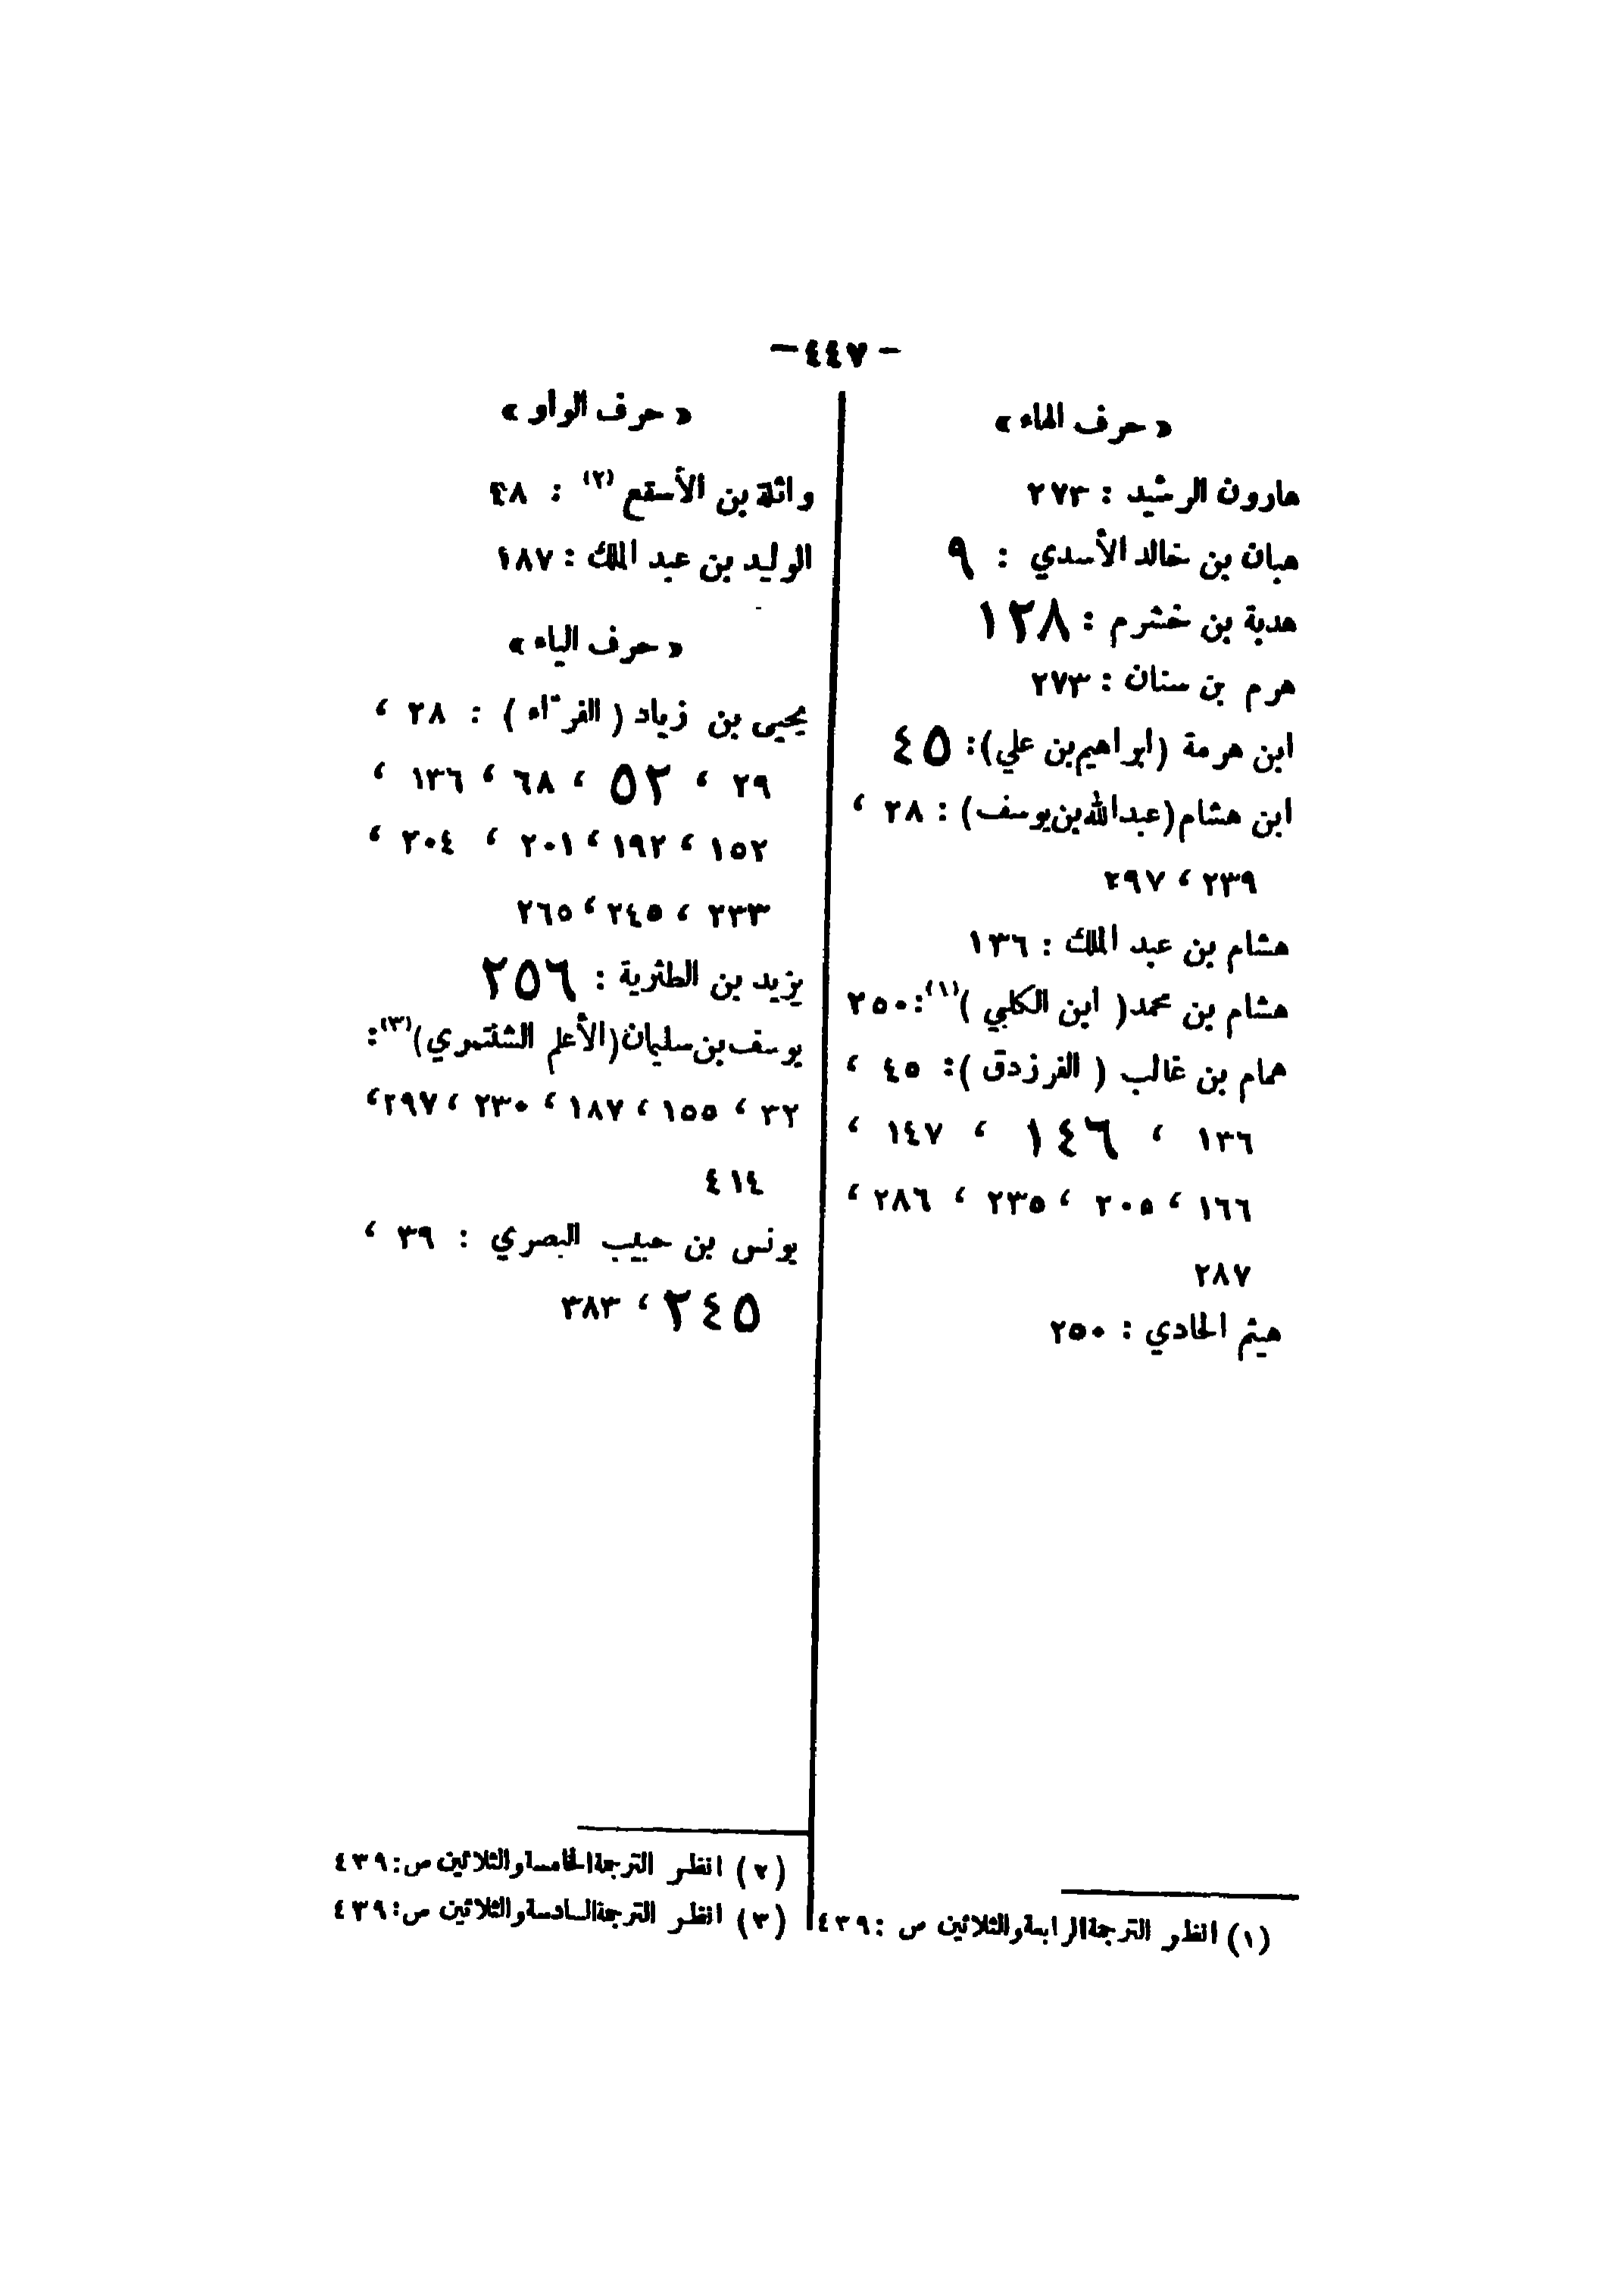 - ٤٤٧ -
« حرف الهاء »
هارون الرشيد : ٢٧٣
هبان بن خالد الأسدي : ٩
هدبة بن خشرم : ١٢٨
هرم بن سنان : ٢٧٣
ابن هرمة (ابراهيم بن علي): ٤٥
ابن هشام (عبدالله بن يوسف) : ٢٨ ،
٢٣٩ ، ٢٩٧
هشام بن عبد الملك : ١٣٦
هشام بن محمد ( ابن الكلبي )(١): ٢٥٠
همام بن غالب ( الفرزدق ): ٤٥ ،
١٣٦ ، ١٤٦ ، ١٤٧ ،
١٦٦ ، ٢٠٥ ، ٢٣٥ ، ٢٨٦ ،
٢٨٧
هيثم الحادي : ٢٥٠
(١) انظر الترجمة الرابعة والثلاثين ص : ٤٣٩
« حرف الواو »
واثلة بن الأسقع (٢) : ٤٨
الوليد بن عبد الملك : ١٨٧
« حرف الياء »
يحيى بن زياد ( الفرّاء ) : ٢٨ ،
٢٩ ، ٥٢ ، ٦٨ ، ١٣٦ ،
١٥٢ ، ١٩٢ ، ٢٠١ ، ٢٠٤ ،
٢٣٣ ، ٢٤٥ ، ٢٦٥
يزيد بن الطثرية : ٢٥٦
يوسف بن سليمان (الأعلم الشنتمري)(٣):
٣٢ ، ١٥٥ ، ١٨٧ ، ٢٣٠ ، ٢٩٧،
٤١٤
يونس بن حبيب البصري : ٣٩ ،
٢٤٥ ، ٣٨٣
(٢) انظر الترجمة الخامسة والثلاثين ص: ٤٣٩
(٣) انظر الترجمة السادسة والثلاثين ص: ٤٣٩